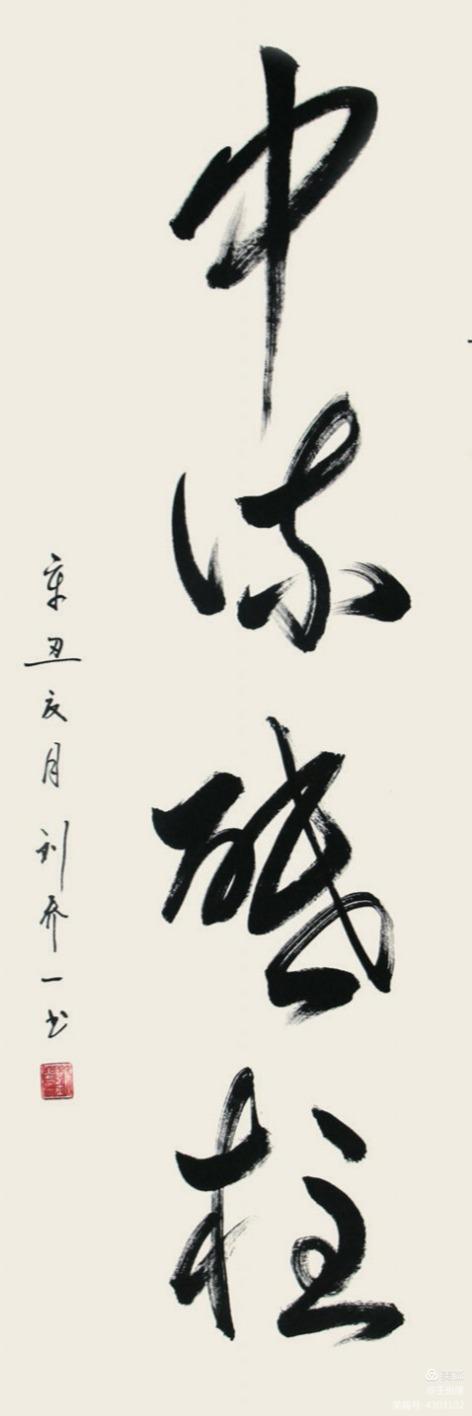 中流砥柱
辛丑亥月刘乔一书